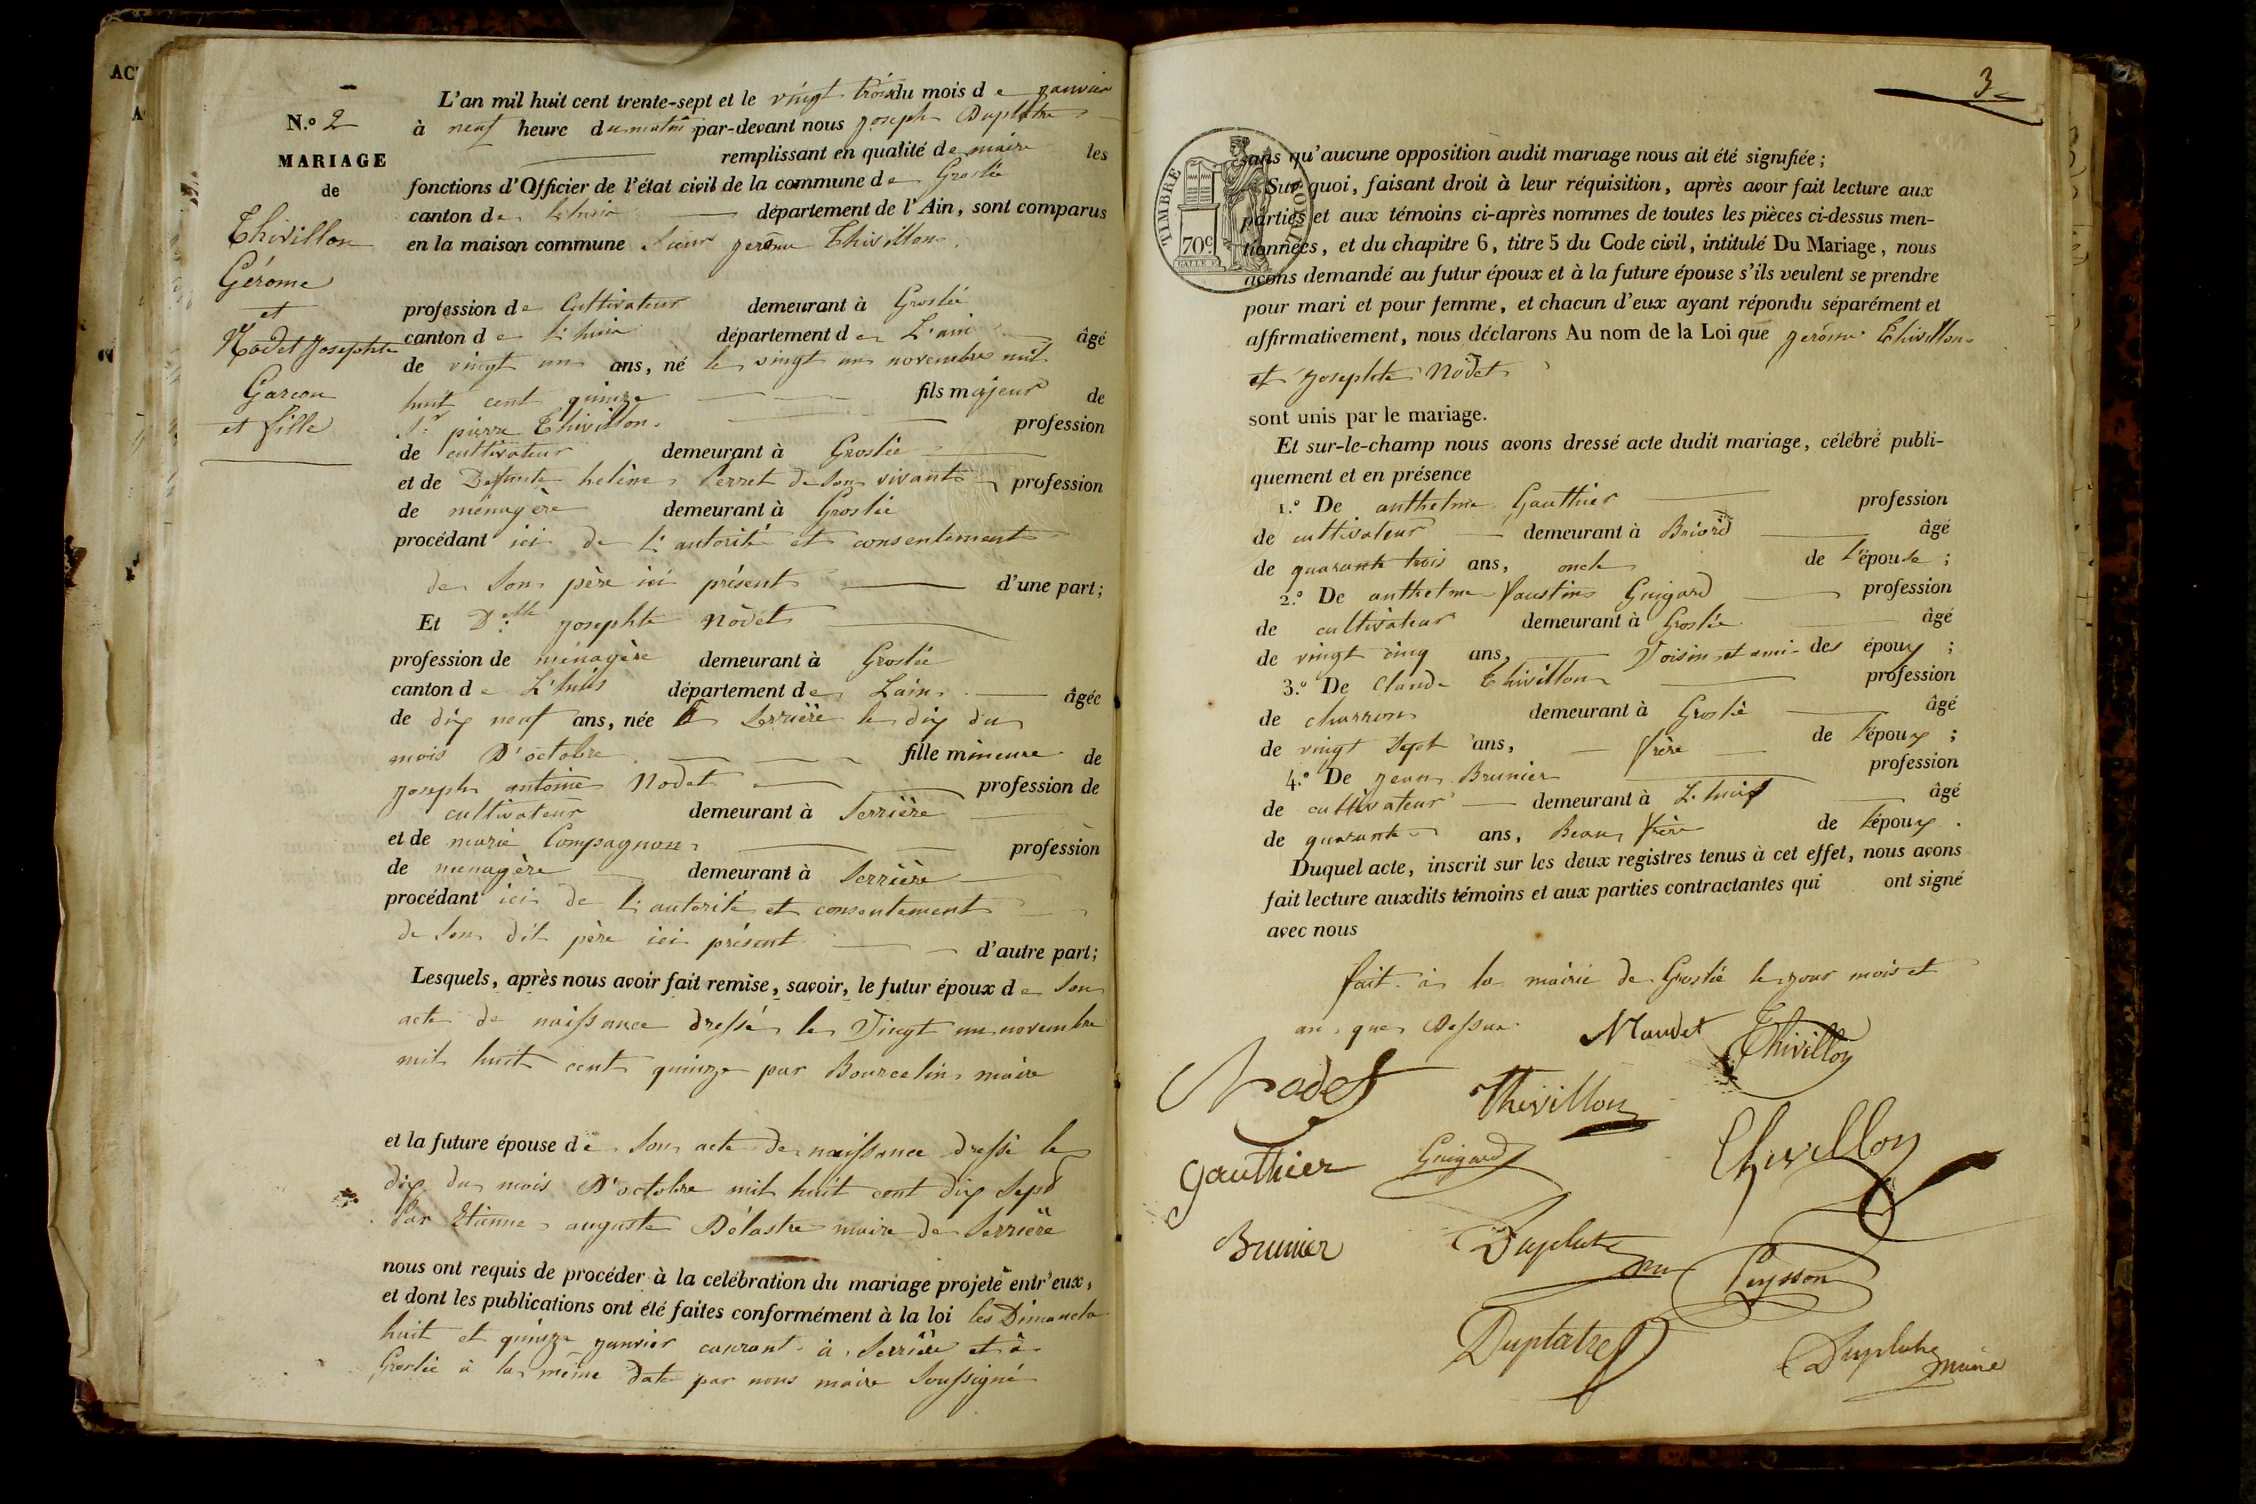 N.º 2
MARIAGE
de
Thivillon
Gérome
et
Nodet Josephte
Garcon
et fille
L'an mil huit cent trente-sept et le vingt trois du mois de janvier
à neuf heure du matin par-devant nous joseph Duplatre
remplissant en qualité de maire les
fonctions d'Officier de l'état civil de la commune de Groslée
canton de Lhuis département de l'Ain, sont comparus
en la maison commune Sieur gerôme Thivillon
profession de Cultivateur demeurant à Groslée
canton de L'huis département de L'ain âgé
de vingt un ans, né le vingt un novembre mil
huit cent quinze fils majeur de
Sr pierre Thivillon profession
de cultivateur demeurant à Groslée
et de Defunte helène Perret de Son vivant profession
de ménagère demeurant à Groslée
procédant ici de L'autorité et consentement
de Son père ici présent d'une part;
Et Delle josephte Nodet
profession de ménagère demeurant à Groslée
canton de L'huis département de Lain âgée
de dix neuf ans, née à Serrière le dix du
mois D'octobre fille mineure de
joseph antoine Nodet profession de
cultivateur demeurant à Serrière
et de marie Compagnon profession
de menagère demeurant à Serrière
procédant ici de L'autorité et consentement
de Son dit père ici présent d'autre part;
Lesquels, après nous avoir fait remise, savoir, le futur époux de Son
acte de naissance dressé le Vingt un novembre
mil huit cent quinze par Bourcelin maire
et la future épouse de Son acte de naissance dressé le
dix du mois D'octobre mil huit cent dix Sept
Par Etienne auguste Délastre maire de Serrière
nous ont requis de procéder à la celébration du mariage projeté entr'eux,
et dont les publications ont été faites conformément à la loi les Dimanche
huit et quinze janvier courant à Serrière et à
Groslée à la même date par nous maire Soussigné
3
TIMBRE ROYAL
70c
sans qu'aucune opposition audit mariage nous ait été signifiée;
Sur quoi, faisant droit à leur réquisition, après avoir fait lecture aux
parties et aux témoins ci-après nommes de toutes les pièces ci-dessus men-
tionnées, et du chapitre 6, titre 5 du Code civil, intitulé Du Mariage, nous
avons demandé au futur époux et à la future épouse s'ils veulent se prendre
pour mari et pour femme, et chacun d'eux ayant répondu séparément et
affirmativement, nous déclarons Au nom de la Loi que gerôme Thivillon
et josephte Nodet
sont unis par le mariage.
Et sur-le-champ nous avons dressé acte dudit mariage, célébré publi-
quement et en présence
1.º De anthelme Gauthier profession
de cultivateur demeurant à Briord âgé
de quarante trois ans, oncle de l'épouse;
2.º De anthelme faustin Guigard profession
de cultivateur demeurant à Groslée âgé
de vingt cinq ans, Voisin et ami des époux;
3.º De Claude Thivillon profession
de charron demeurant à Groslée âgé
de vingt Sept ans, frère de l'époux;
4.º De jean Brunier profession
de cultivateur demeurant à L'huis âgé
de quarante ans, Beau frère de l'époux.
Duquel acte, inscrit sur les deux registres tenus à cet effet, nous avons
fait lecture auxdits témoins et aux parties contractantes qui ont signé
avec nous
fait à la mairie de Groslée les jour mois et
an que Dessus.
Naudet Thivillon
Nodet Thivillon
Gauthier Guigard Thivillon
Brunier Duplatre Peysson
Duplatre Duplatre maire